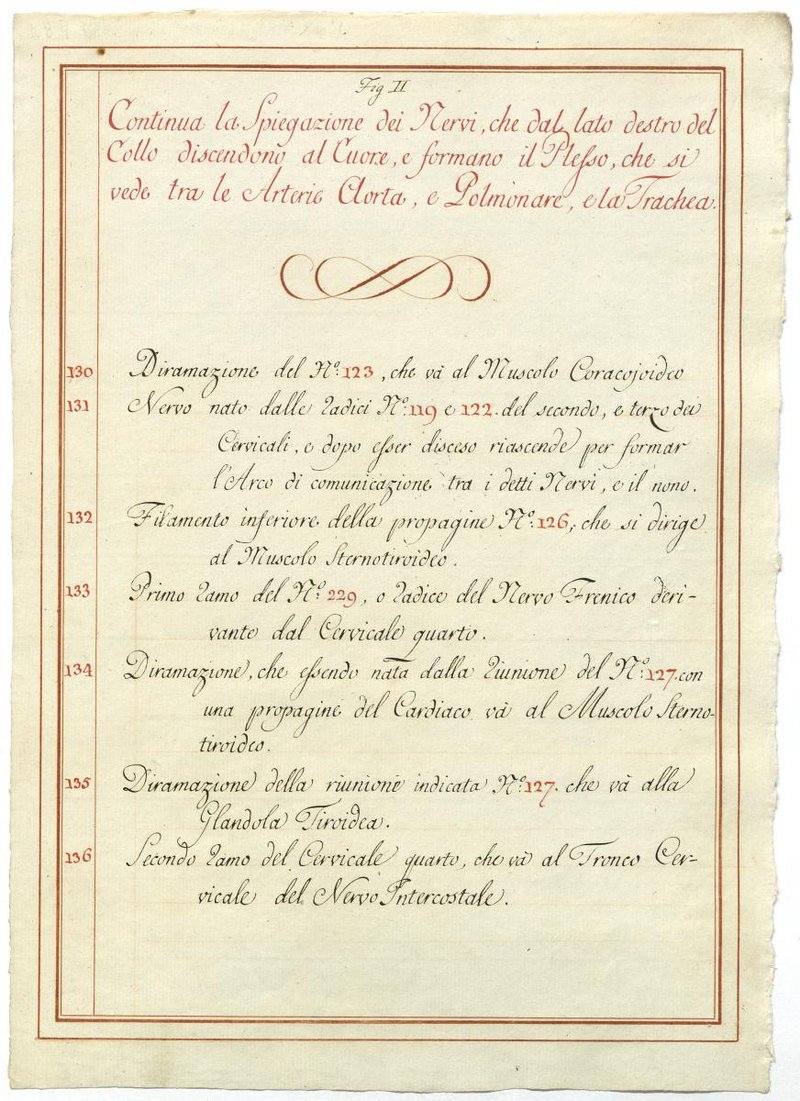 Fig II
Continua la Spiegazione dei Nervi, che dal lato destro del
Collo discendono al Cuore, e formano il Plesso, che si
vede tra le Arterie Aorta, e Polmonare, e la Trachea.
130 Diramazione del Nº. 123, che và al Muscolo Coracojoideo
131 Nervo nato dalle radici Nº. 119 e 122. del secondo, e terzo dei
Cervicali, e dopo esser disceso riascende per formar
l'Arco di comunicazione tra i detti Nervi, e il nono.
132 Filamento inferiore della propagine Nº. 126, che si dirige
al Muscolo Sternotiroideo.
133 Primo ramo del Nº. 229, o radice del Nervo Frenico deri-
vante dal Cervicale quarto.
134 Diramazione, che essendo nata dalla riunione del Nº. 127. con
una propagine del Cardiaco và al Muscolo Sterno-
tiroideo.
135 Diramazione della riunione indicata Nº. 127. che và alla
Glandola Tiroidea.
136 Secondo ramo del Cervicale quarto, che và al Tronco Cer-
vicale del Nervo Intercostale.